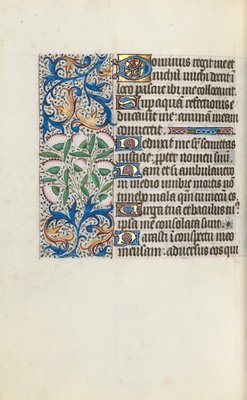 Dominus regit me et
nichil michi deerit i
loco pascue ibi me collocavit.
Sup aquam refectionis e
ducavit me: animam meam
convertit.
Deduxit me sup semitas
iusticie: ppter nomen suu.
Nam et si ambulavero
in medio umbre mortis no
timebo mala: qm tu mecu es.
Virga tua et baculus tu
ipsa me consolata sunt.
Parasti i conspectu meo
mensam: adversus eos qui